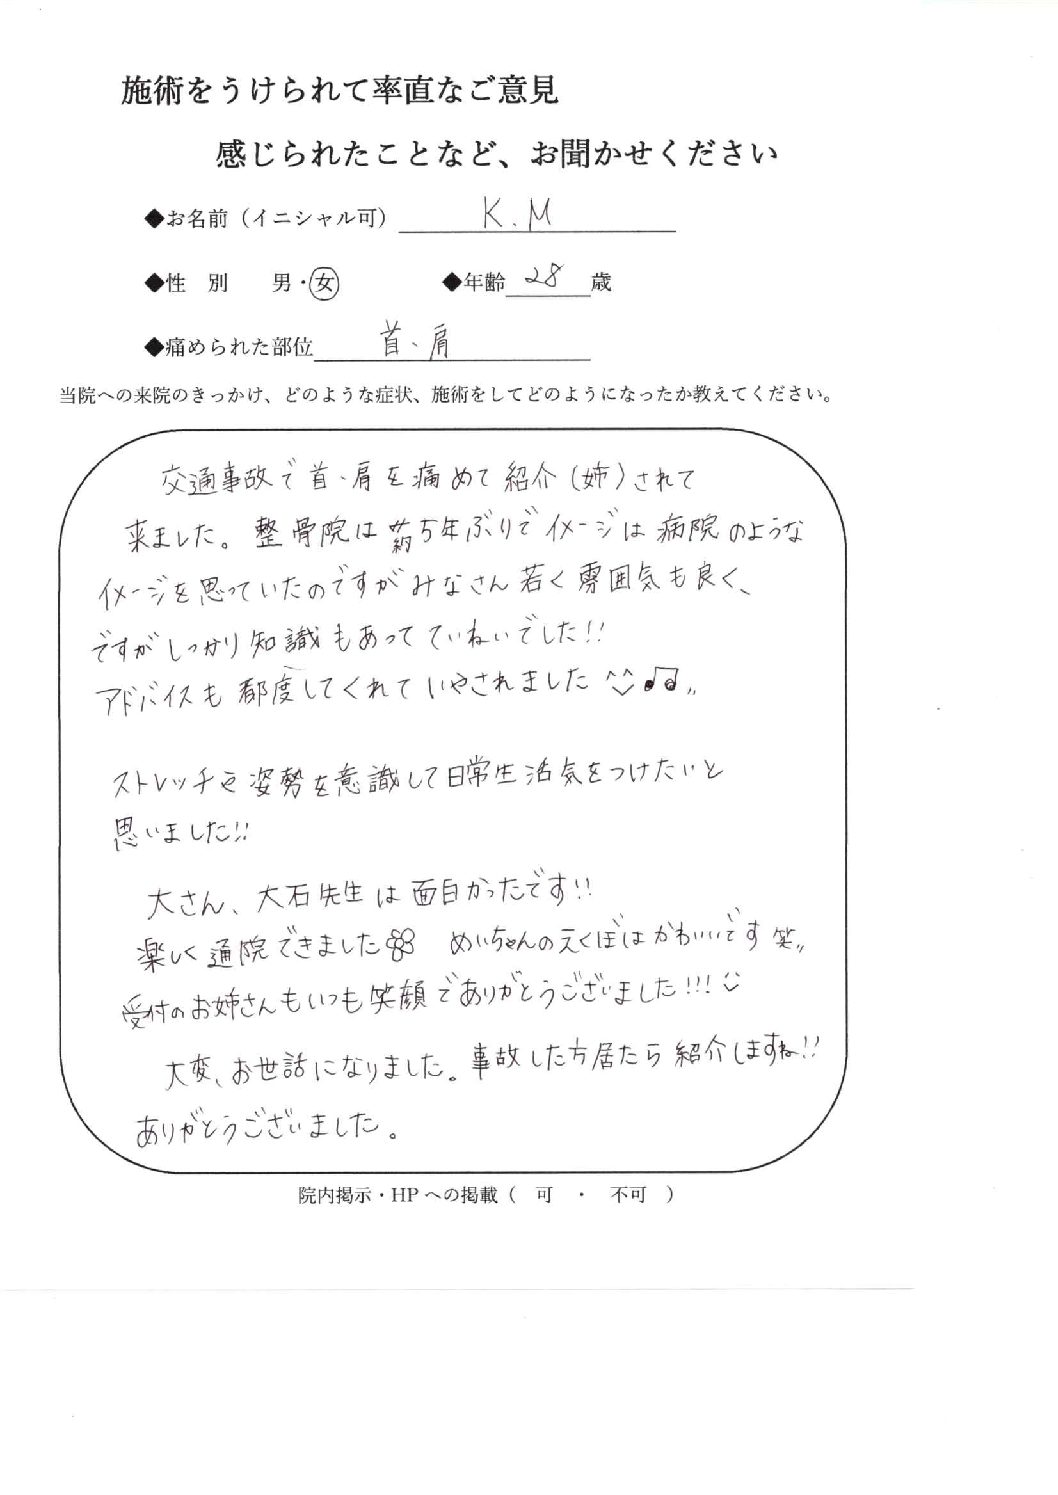 施術をうけられて率直なご意見
感じられたことなど、お聞かせください
◆お名前（イニシャル可） K.M
◆性 別 男・女 ◆年齢 28 歳
◆痛められた部位 首・肩
当院への来院のきっかけ、どのような症状、施術をしてどのようになったか教えてください。
交通事故で首・肩を痛めて紹介（姉）されて
来ました。整骨院は約5年ぶりでイメージは病院のような
イメージを思っていたのですがみなさん若く雰囲気も良く、
ですがしっかり知識もあってていねいでした!!
アドバイスも都度してくれていやされました
ストレッチや姿勢を意識して日常生活気をつけたいと
思いました!!
大さん、大石先生は面白かったです!!
楽しく通院できました めいちゃんのえくぼはかわいいです笑
受付のお姉さんもいつも笑顔でありがとうございました!!!
大変、お世話になりました。事故した方居たら紹介しますね!!
ありがとうございました。
院内掲示・HPへの掲載（ 可 ・ 不可 ）